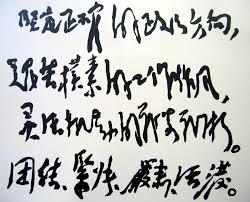 坚定正确的政治方向，
艰苦朴素的工作作风，
灵活机动的战略战术。
团结、紧张、严肃、活泼。